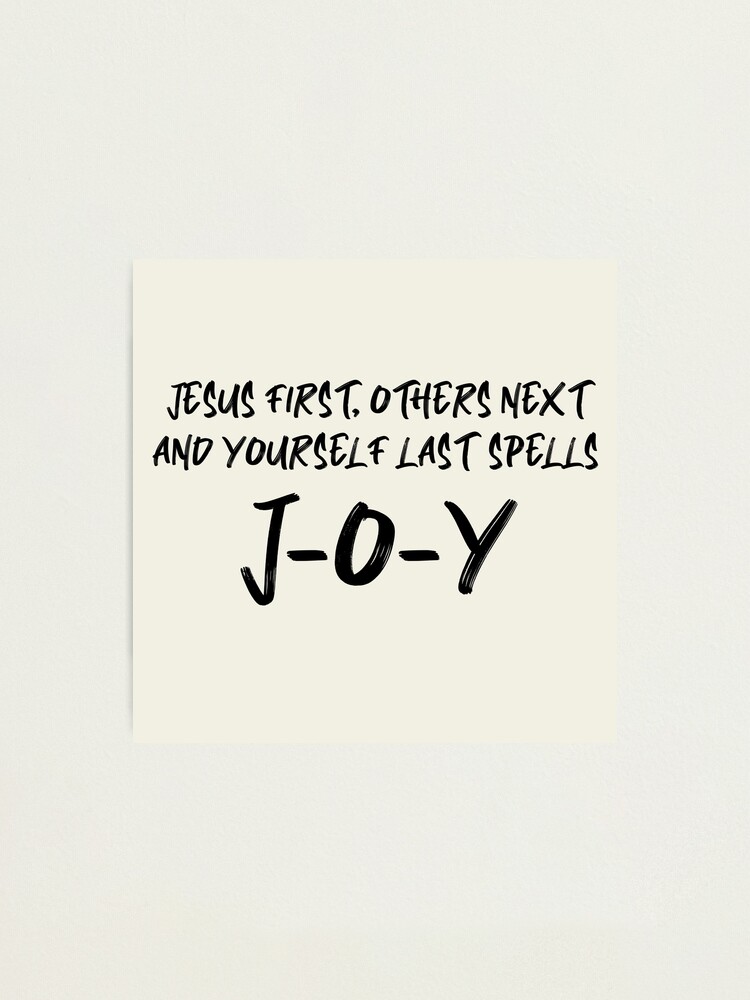 JESUS FIRST, OTHERS NEXT
AND YOURSELF LAST SPELLS
J-O-Y